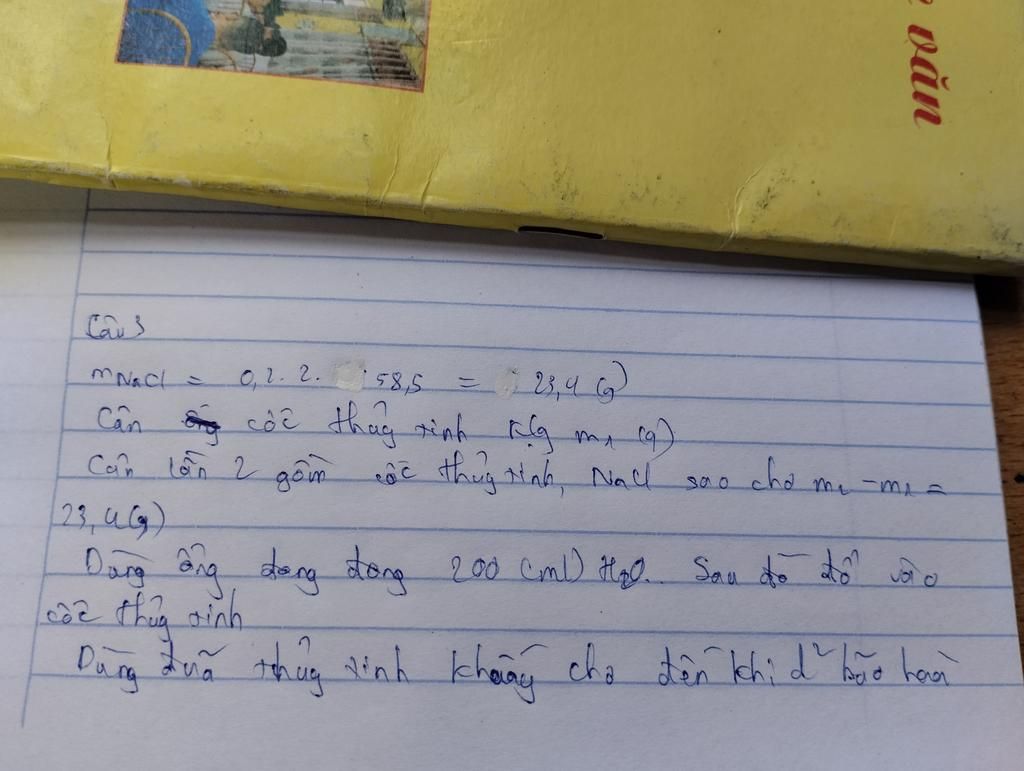 văn
Câu 3
mNaCl = 0,2. 2. 58,5 = 23,4 (g)
Cân cốc thủy tinh m₁ (g)
Cân lần 2 gồm cốc thủy tinh, NaCl sao cho m₂ - m₁ =
23,4 (g)
Dùng ống đong đong 200 (ml) H₂O. Sau đó đổ vào
cốc thủy tinh
Dùng đũa thủy tinh khuấy cho đến khi d² bão hoà